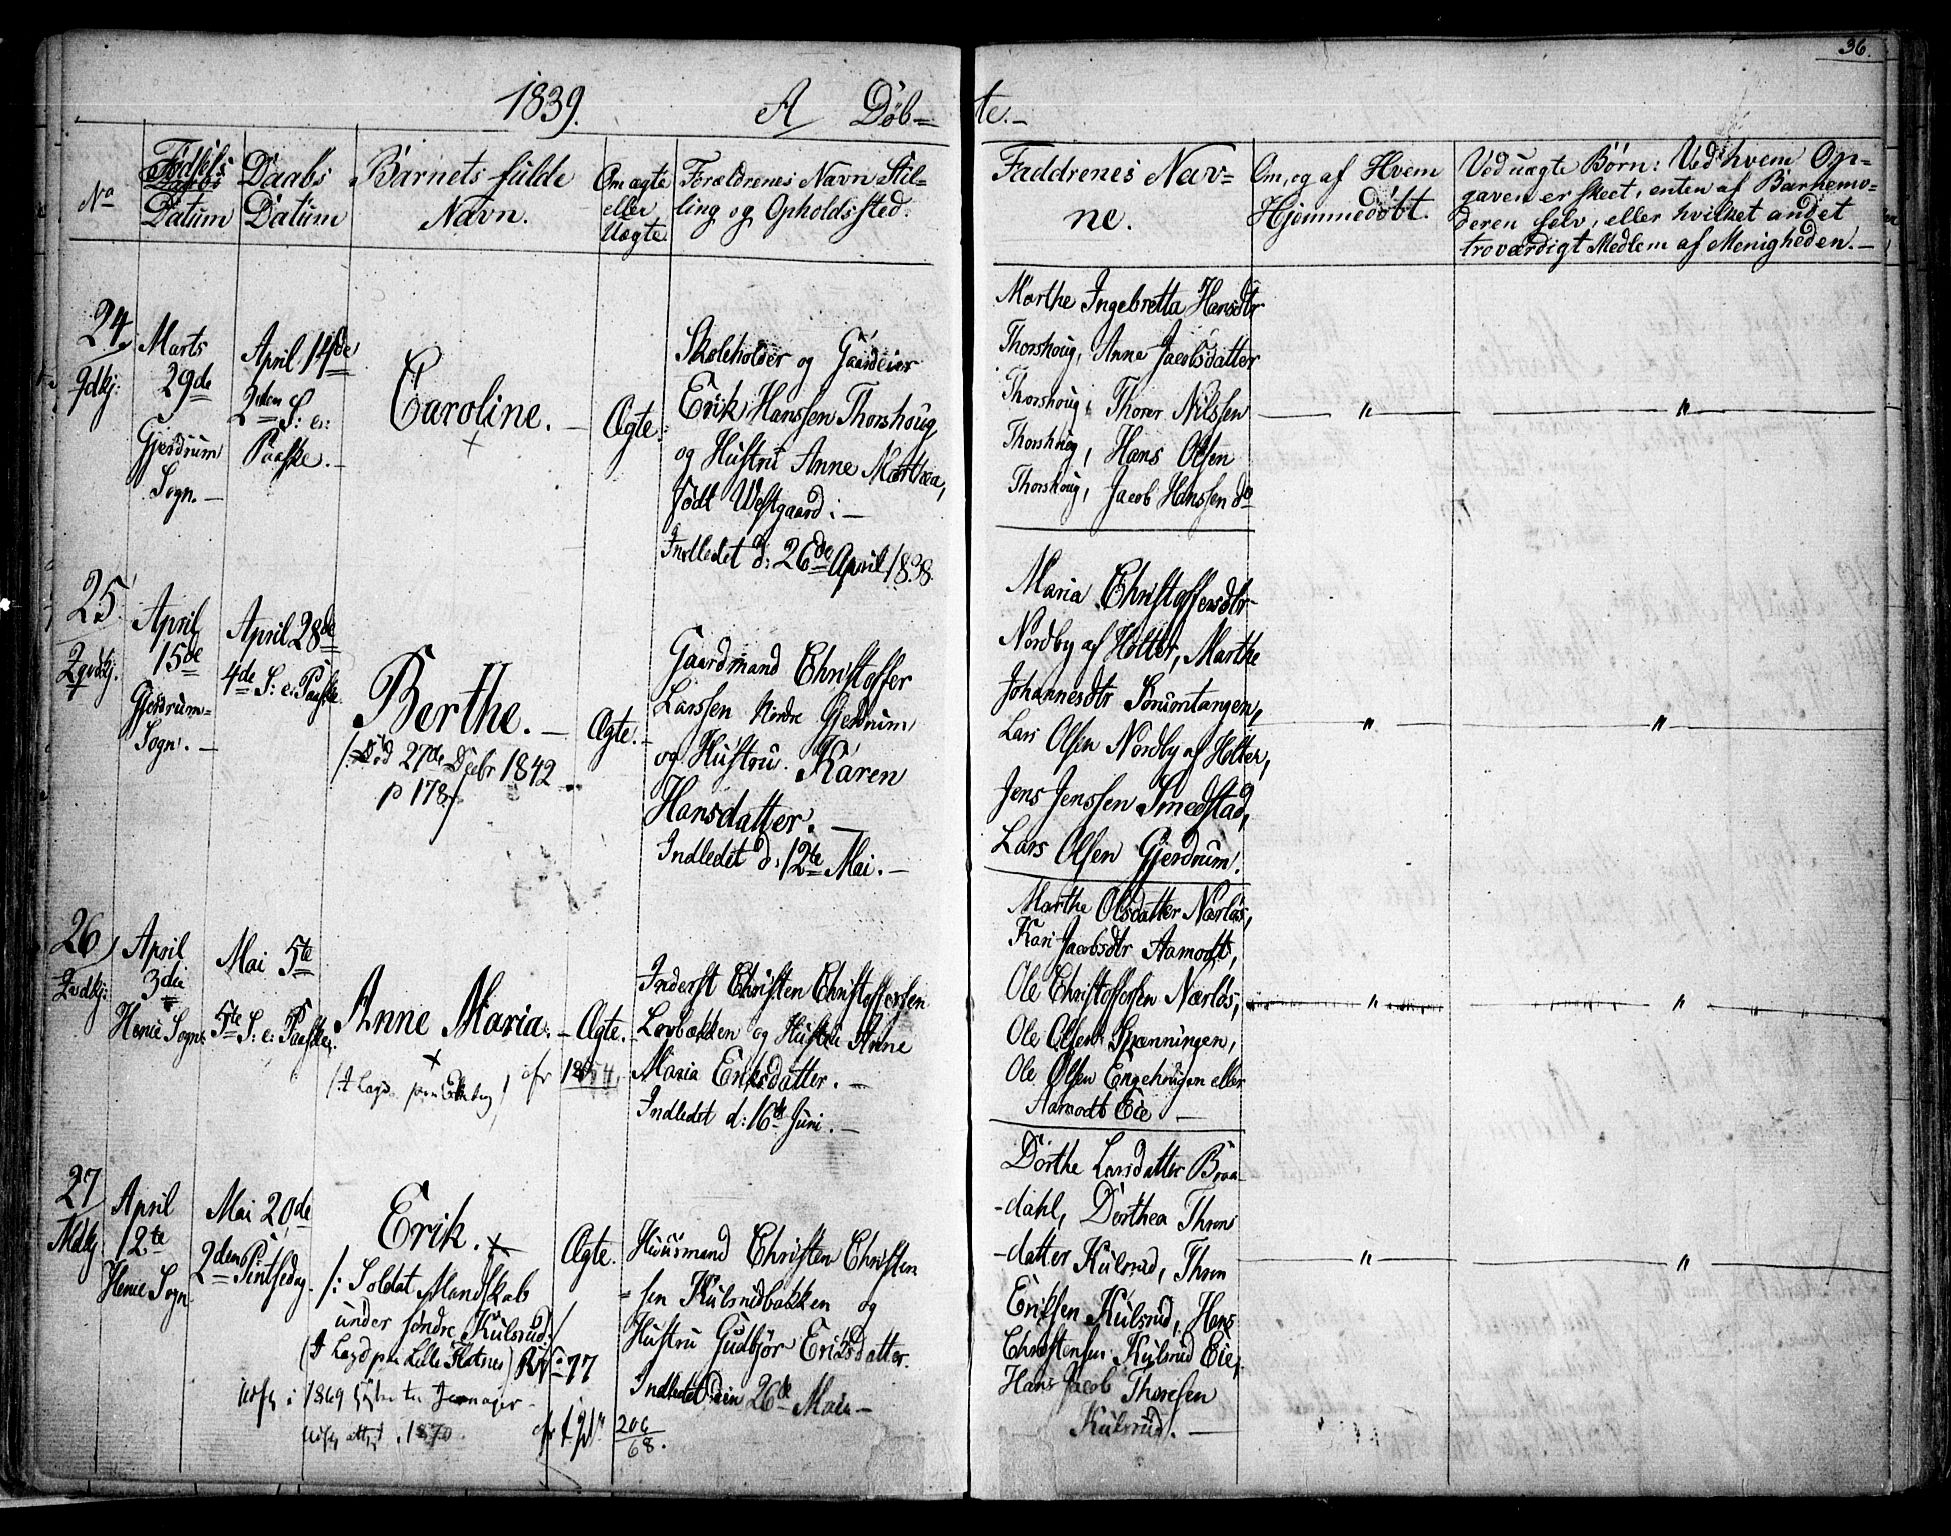 36.
1839. A Døb= te.-
No
Fødsels
Datum
Daabs
Datum
Barnets fulde
Navn.
Om ægte
eller
Uægte
Forældrenes Navn Stil=
ling og Opholdssted.
Faddrenes Nav=
ne.
Om, og af Hvem
Hjemmedøbt.
Ved uægte Børn: Ved hvem Op=
gaven er skeet, enten af Barnemo=
deren selv, eller hvilket andet
troværdigt Medlem af Menigheden.-
24
Marts
29de
Gjerdrum
Sogn.-
April 14de
2den S: e:
Paaske.-
Caroline.-
Ægte.
Skoleholder og Gaardeier
Erik Hanssen Thorshoug,
og Hustru Anne Marthea,
født Westgaard.-
Indledet d: 26de April 1838.
Marthe Ingebretta Hansdtr
Thorshoug, Anne Jacobsdatter
Thorshoug, Thorer Nilssen
Thorshoug, Hans Olsen
Thorshoug, Jacob Hanssen do
— " —
— " —
25
April
15de
Gjerdrum=
Sogn.-
April 28de
4de S: e: Paaske
Berthe.-
/: Død 27de Debr 1842
p 178 /
Ægte.-
Gaardmand Christoffer
Larssen Nordre Gjerdrum
og Hustru Karen
Hansdatter.-
Indledet d: 12te Mai.-
Maria Christoffersdtr
Nordby af Holter, Marthe
Johannesdtr Sørumtangen,
Lars Olsen Nordby af Holter,
Jens Jenssen Smedstad,
Lars Olsen Gjerdrum.
— " —
— " —
26
April
3die
Heni Sogn.
Mai 5te
5te S: e: Paaske.
Anne Maria.-
Ægte.-
Inderst Christen Christoffersen
Løvbakken og Hustru Anne
Maria Eriksdatter.-
Indledet d: 16de Juni.-
Marthe Olsdatter Nærlas,
Kari Jacobsdtr Aamodt,
Ole Christoffersen Nærlas,
Ole Olsen Spenningen,
Ole Olsen Engehaugen eller
Aamodt Eie -
— " —
— " —
27
April
12te
Heni Sogn
Mai 20de
2den Pintsedag.
Erik.
/: Soldat Mandskab
under søndre Kulsrud /
1869
1870.
206
68.
Ægte.
Huusmand Christen Christen
=sen Kulsrudbakken og
Hustru Gudbjør Eriksdatter.
Indledet den 26de Mai-
Dorthe Larsdatter Braa
-dahl, Dorthea Throns
-datter Kulsrud, Thron
Eriksen Kulsrud, Hans
Christensen Kulsrud Eie,
Hans Jacob Thoresen
Kulsrud.-
— " —
— " —